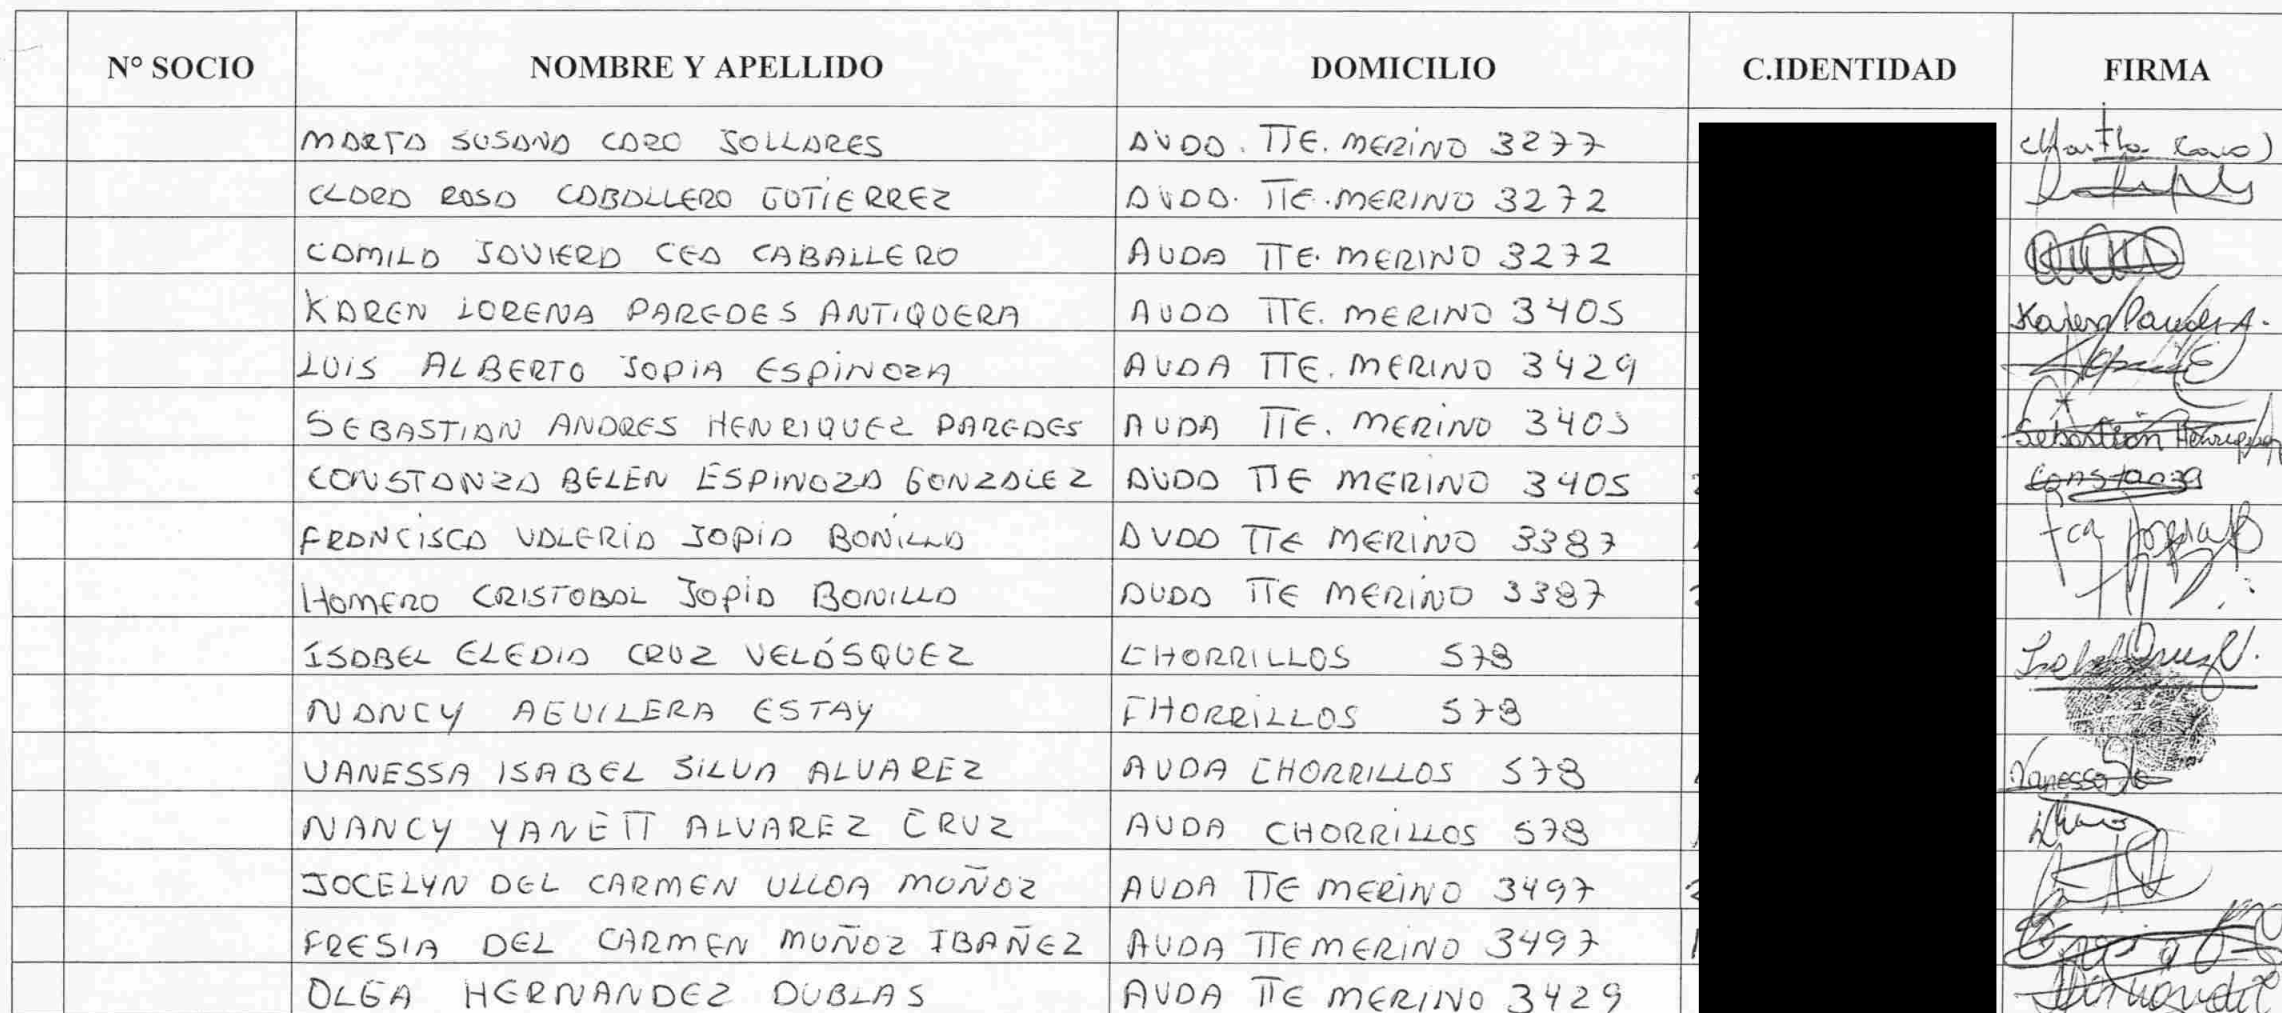 N° SOCIO NOMBRE Y APELLIDO DOMICILIO C.IDENTIDAD FIRMA
MARTA SUSANA CARO JOLLARES AVDA. TTE. MERINO 3277 Martha Caro
CLARA ROSA CABALLERO GUTIERREZ AVDA. TTE. MERINO 3272
CAMILA JAVIERA CEA CABALLERO AVDA TTE. MERINO 3272
KAREN LORENA PAREDES ANTIQUERA AVDA TTE. MERINO 3405 Karen Paredes A.
LUIS ALBERTO JOPIA ESPINOZA AVDA TTE. MERINO 3429
SEBASTIAN ANDRES HENRIQUEZ PAREDES AVDA TTE. MERINO 3405 Sebastian Henriquez
CONSTANZA BELEN ESPINOZA GONZALEZ AVDA TTE MERINO 3405 Constanza
FRANCISCA VALERIA JOPIA BONILLA AVDA TTE MERINO 3387 Fca Jopia B
HOMERO CRISTOBAL JOPIA BONILLA AVDA TTE MERINO 3387
ISABEL ELEDIA CRUZ VELÁSQUEZ CHORRILLOS 578 Isabel Cruz V.
NANCY AGUILERA ESTAY CHORRILLOS 578
VANESSA ISABEL SILVA ALVAREZ AVDA CHORRILLOS 578 Vanessa
NANCY YANETT ALVAREZ CRUZ AVDA CHORRILLOS 578
JOCELYN DEL CARMEN ULLOA MUÑOZ AVDA TTE MERINO 3497
FRESIA DEL CARMEN MUÑOZ IBAÑEZ AVDA TTE MERINO 3497
OLGA HERNANDEZ DUBLAS AVDA TTE MERINO 3429